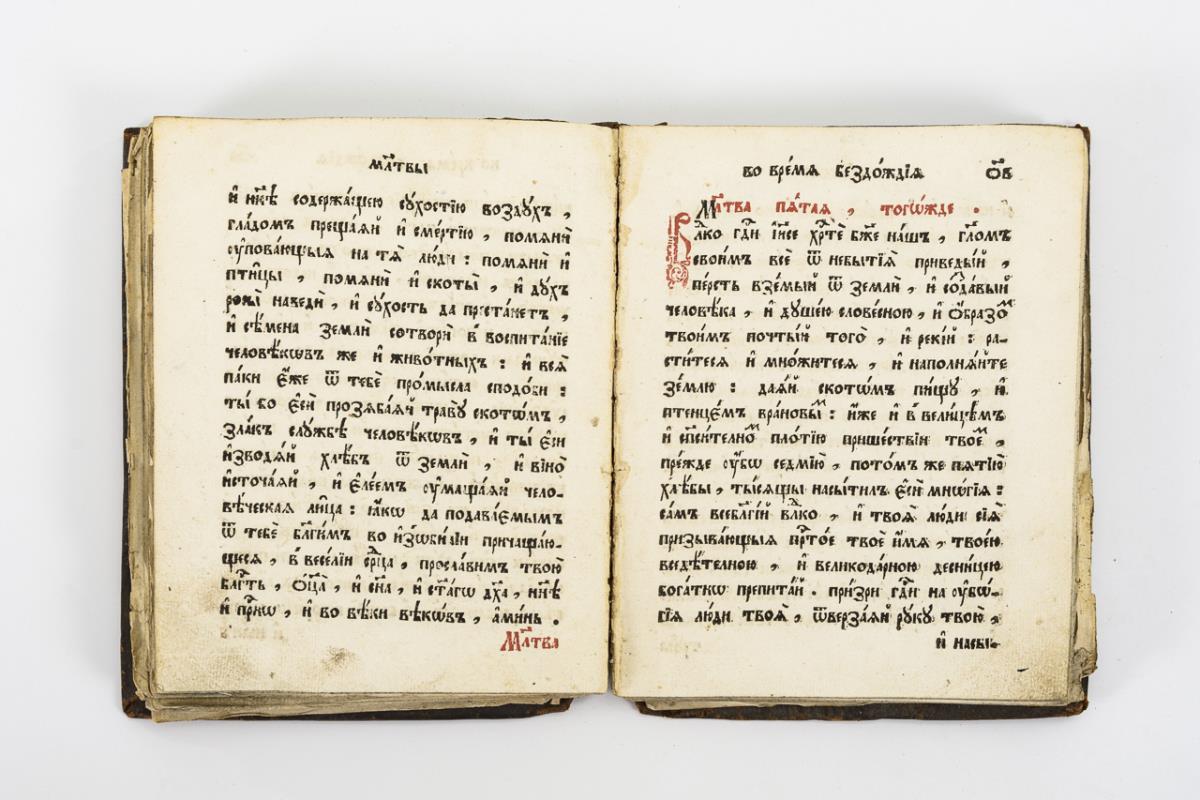 мл҃твы
и҆ нн҃ѣ содержа́щею сꙋ́хостїю воздꙋхъ ,
гла́домъ преща́ѧй и҆ сме́ртїю , помѧнѝ
ᲂу҆пова́ющыѧ на тѧ̀ лю́ди : помѧнѝ и҆
пти̑цы , помѧнѝ и҆ скоты̀ , и҆ дꙋ́хъ
росы̀ наведѝ , и҆ сꙋ́хость да преста́нетъ ,
и҆ сѣ́мена землѝ сотворѝ в воспита́нїе
человѣ́кѡвъ же и҆ живо́тныхъ : и҆ всѧ̀
па́ки є҆́же ѿ тебє̀ про́мысла сподо́би :
ты́ бо є҆сѝ прозѧба́ѧй травꙋ̀ скотѡ́мъ ,
зла́къ слꙋ́жбѣ человѣ́кѡвъ , и҆ ты̀ є҆сѝ
и҆зводѧ́й хлѣ́бъ ѿ землѝ , и҆ вїно̀
и҆сточа́ѧй , и҆ є҆ле́емъ ᲂу҆маща́ѧй чело-
вѣ́ческаѧ ли́ца : ꙗ҆́кѡ да подава́емымъ
ѿ тебє̀ бл҃ги́мъ во и҆зѡби́лїи причаща́ю-
щесѧ , в весе́лїи ср҃ца , просла́вимъ твою̀
бл҃гть , ѻ҆ц҃а̀ , и҆ сн҃а , и҆ ст҃а́гѡ дх҃а , нн҃ѣ
и҆ прⷭ҇нѡ , и҆ во вѣ́ки вѣкѡ́въ , а҆ми́нь .
Мл҃тва
во вре́мѧ бездо́ждїѧ ѻ҃в
Мл҃тва пѧ́таѧ , тогѡ́жде .
Влⷣко гдⷭ҇и і҆и҃се хрⷭ҇тѐ бж҃е на́шъ , гл҃омъ
свои́мъ всѐ ѿ небытїѧ̀ приведы́й ,
пе́рсть взе́мый ѿ землѝ , и҆ созда́вый
человѣ́ка , и҆ дꙋше́ю слове́сною , и҆ ѻ҆́бразоⷨ
твои́мъ почты́й того̀ , и҆ реки́й : ра-
сти́тесѧ и҆ мно́житесѧ , и҆ наполнѧ́йте
зе́млю : даѧ́й скотѡ́мъ пи́щꙋ , и҆
птенцє́мъ врановыⷨ : и҆́же и҆ в вели́цѣмъ
и҆ сп҃си́телноⷨ пло́тїю прише́ствїи твоеⷨ ,
пре́жде ᲂу҆́бѡ седмїю , пото́мъ же пѧтїю
хлѣ́бы , ты́сѧщы насы́тилъ є҆сѝ мнѡ́гїѧ :
са́мъ всебл҃гі́й влⷣко , и҆ твоѧ̀ лю́ди сїѧ̀
призыва́ющыѧ прⷭ҇то́е твоѐ и҆́мѧ , твое́ю
вседѣ́телною , и҆ великода́рною десни́цею
бога́ткѡ препита́й . при́зри гдⷭ҇и на ᲂу҆бѡ́-
гїѧ лю́ди твоѧ̀ , ѿверза́ѧй рꙋ́кꙋ твою̀ ,
и҆ насы-